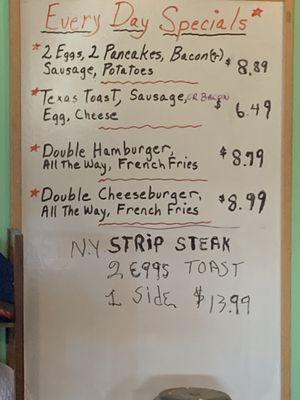 Every Day Specials*
* 2 Eggs, 2 Pancakes, Bacon(or)
Sausage, Potatoes $8.89
* Texas Toast, Sausage, OR BACON
Egg, Cheese $6.49
* Double Hamburger,
All The Way, French Fries $8.79
* Double Cheeseburger,
All The Way, French Fries $8.99
N.Y STRIP STEAK
2 EGGS TOAST
1 SIDE $13.99